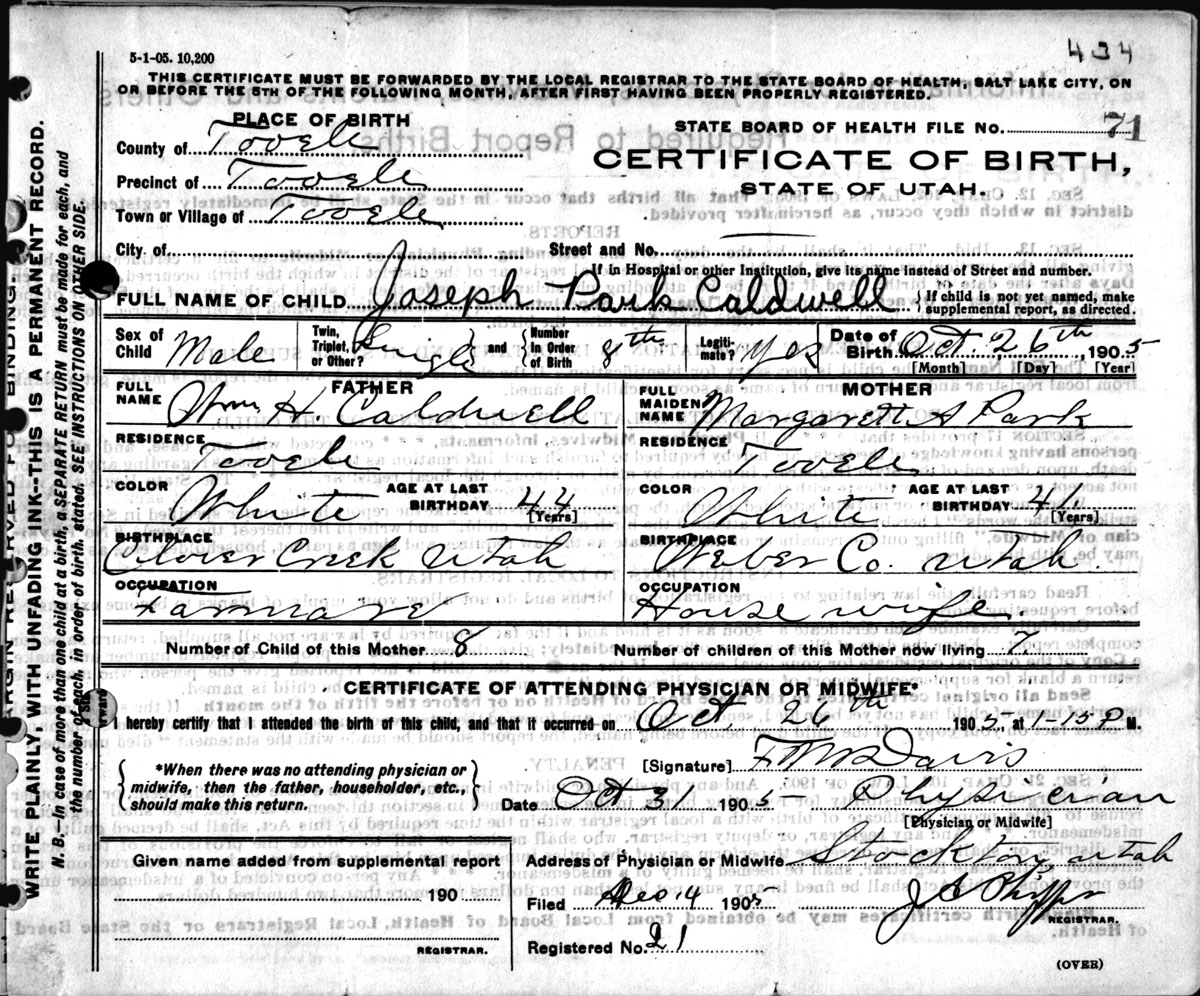 434
5-1-05. 10,200
THIS CERTIFICATE MUST BE FORWARDED BY THE LOCAL REGISTRAR TO THE STATE BOARD OF HEALTH, SALT LAKE CITY, ON
OR BEFORE THE 5TH OF THE FOLLOWING MONTH, AFTER FIRST HAVING BEEN PROPERLY REGISTERED.
PLACE OF BIRTH
STATE BOARD OF HEALTH FILE NO. 71
County of Tooele
CERTIFICATE OF BIRTH,
Precinct of Tooele
STATE OF UTAH.
Town or Village of Tooele
City of Street and No.
If in Hospital or other Institution, give its name instead of Street and number.
FULL NAME OF CHILD Joseph Park Caldwell { If child is not yet named, make supplemental report, as directed.
Sex of Child Male Twin, Triplet, or Other? Single and { Number In Order of Birth 8th Legitimate? Yes Date of Birth Oct. 26th, 1905
[Month] [Day] [Year]
FATHER
MOTHER
FULL NAME Wm H. Caldwell
FULL MAIDEN NAME Margarett A Park
RESIDENCE Tooele
RESIDENCE Tooele
COLOR White AGE AT LAST BIRTHDAY 44 [Years]
COLOR White AGE AT LAST BIRTHDAY 41 [Years]
BIRTHPLACE Clover Creek Utah
BIRTHPLACE Weber Co. Utah.
OCCUPATION
OCCUPATION House wife.
Number of Child of this Mother 8
Number of children of this Mother now living 7
CERTIFICATE OF ATTENDING PHYSICIAN OR MIDWIFE*
I hereby certify that I attended the birth of this child, and that it occurred on Oct. 26th 1905, at 1-15 P M.
[Signature] Davis
{ *When there was no attending physician or midwife, then the father, householder, etc., should make this return. }
Date Oct 31 1905 Physician
[Physician or Midwife]
Given name added from supplemental report
Address of Physician or Midwife Stockton, Utah
190
Filed Dec 4 1905
REGISTRAR.
REGISTRAR.
Registered No. 21
(OVER)
MARGIN RESERVED FOR BINDING.
WRITE PLAINLY, WITH UNFADING INK--THIS IS A PERMANENT RECORD.
N. B. In case of more than one child at a birth, a SEPARATE RETURN must be made for each, and
the number of each, in order of birth, stated. SEE INSTRUCTIONS ON OTHER SIDE.